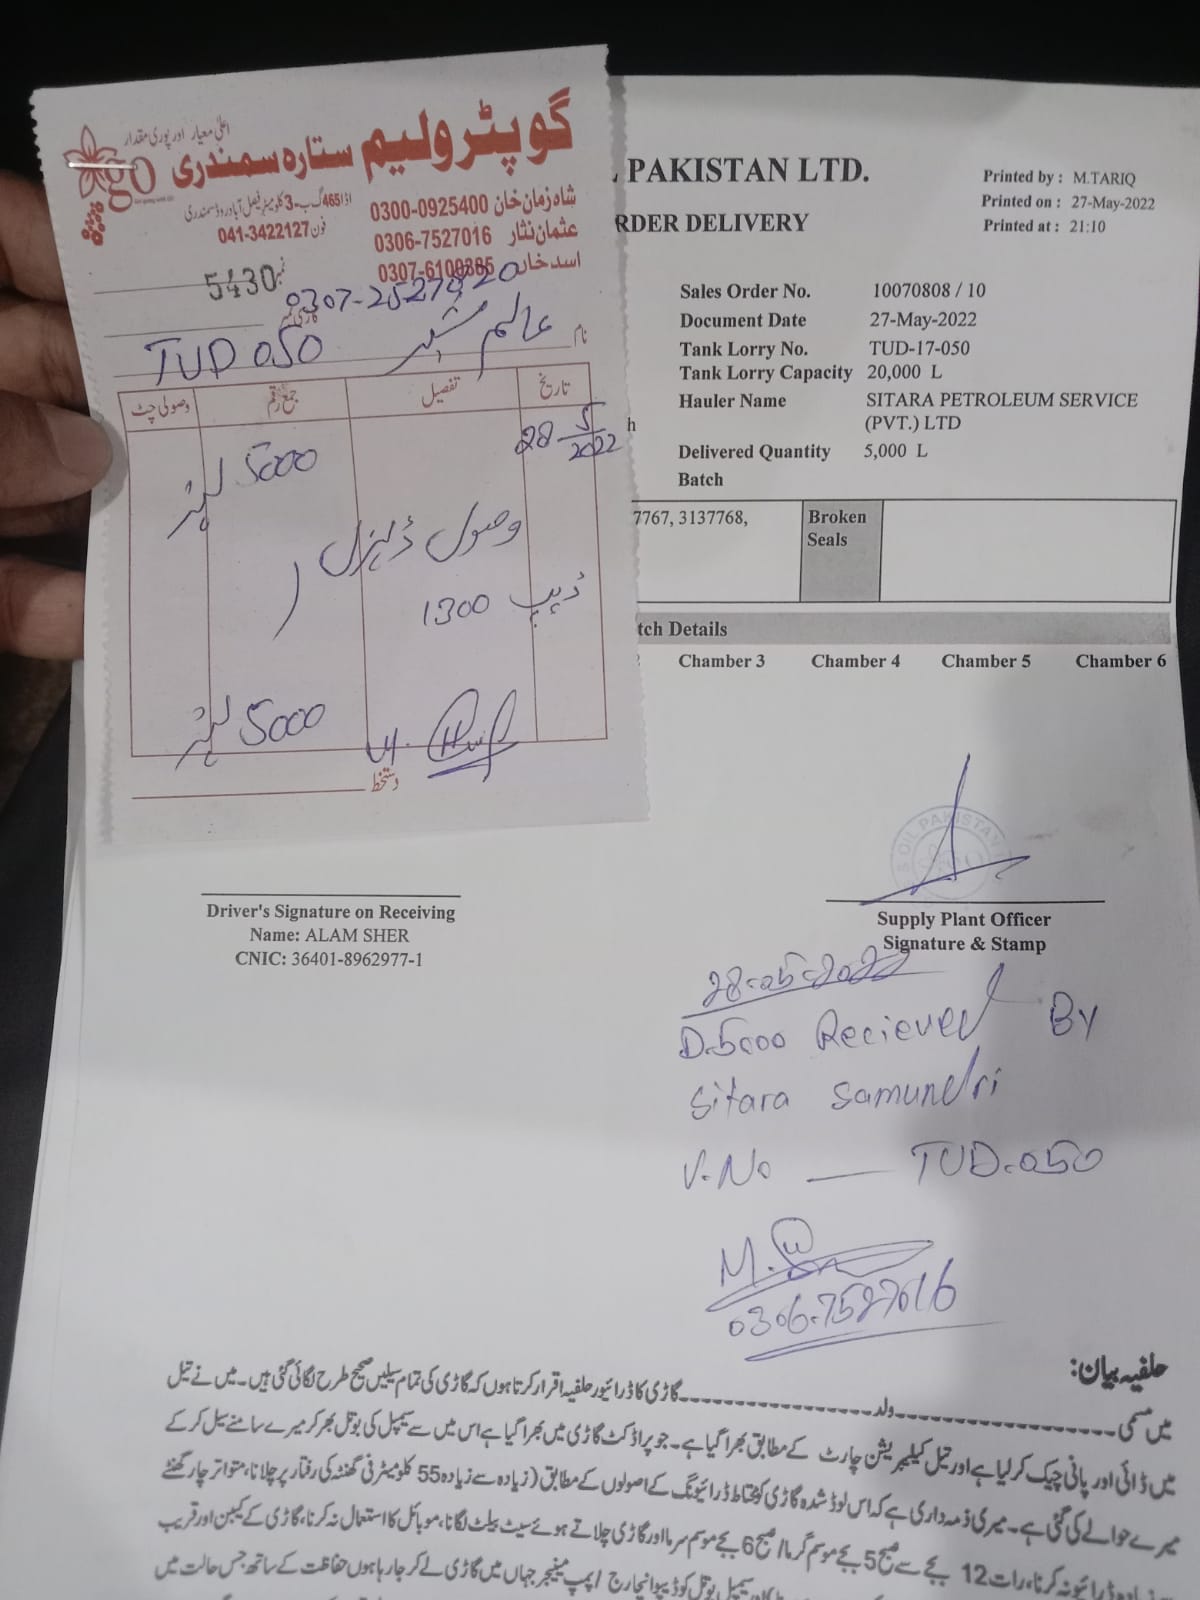 اعلیٰ معیار اور پوری مقدار
گو پٹرولیم ستارہ سمندری
go
اڈا 465 گ ب-3 کلومیٹر فیصل آباد روڈ سمندری
فون 041-3422127
شاہ زمان خان 0300-0925400
عثمان نثار 0306-7527016
اسد خان 0307-6100385
نمبر 5430
0307-2527820
نام عالم شیر
TUD 050
تاریخ
تفصیل
جمع رقم
وصولی چٹ
28-5/2022
5000 لیٹر
وصول ڈیزل
ڈیپ 1300
5000 لیٹر
دستخط
PAKISTAN LTD.
RDER DELIVERY
Printed by : M.TARIQ
Printed on : 27-May-2022
Printed at : 21:10
Sales Order No. 10070808 / 10
Document Date 27-May-2022
Tank Lorry No. TUD-17-050
Tank Lorry Capacity 20,000 L
Hauler Name SITARA PETROLEUM SERVICE
(PVT.) LTD
Delivered Quantity 5,000 L
Batch
7767, 3137768,
Broken
Seals
tch Details
Chamber 3 Chamber 4 Chamber 5 Chamber 6
OIL PAKISTAN
Driver's Signature on Receiving
Name: ALAM SHER
CNIC: 36401-8962977-1
Supply Plant Officer
Signature & Stamp
28-05-2022
D.5000 Recieved By
Sitara Samundri
V.No — TUD.050
0306-7527016
حلفیہ بیان:
میں مسمی ---------- ولد ---------- گاڑی کا ڈرائیور حلفیہ اقرار کرتا ہوں کہ گاڑی کی تمام سیلیں صحیح طرح لگائی گئی ہیں۔ میں نے تیل
میں ڈائی اور پانی چیک کر لیا ہے اور تیل کیلیبریشن چارٹ کے مطابق بھرا گیا ہے۔ جو پراڈکٹ گاڑی میں بھرا گیا ہے اس میں سے سیمپل کی بوتل بھر کر میرے سامنے سیل کر کے
میرے حوالے کی گئی ہے۔ میری ذمہ داری ہے کہ اس لوڈ شدہ گاڑی کو محتاط ڈرائیونگ کے اصولوں کے مطابق (زیادہ سے زیادہ 55 کلومیٹر فی گھنٹہ کی رفتار پر چلانا، متواتر چار گھنٹے
زیادہ ڈرائیو نہ کرنا، رات 12 بجے سے صبح 5 بجے موسم گرما / صبح 6 بجے موسم سرما اور گاڑی چلاتے ہوئے سیٹ بیلٹ لگانا، موبائل کا استعمال نہ کرنا، گاڑی کے کیبن اور قریب
سیمپل بوتل کو ڈیپو انچارج / پمپ مینیجر جہاں میں گاڑی لے کر جا رہا ہوں حفاظت کے ساتھ جس حالت میں